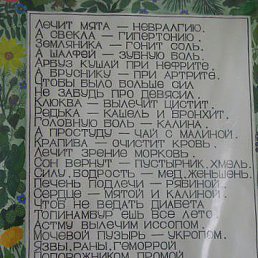 Лечит мята — невралгию.
А свекла — гипертонию.
Земляника — гонит соль.
А шалфей — зубную боль.
Арбуз кушай при нефрите.
А бруснику — при артрите.
Чтобы было больше сил
Не забудь про девясил.
Клюква — вылечит цистит.
Редька — кашель и бронхит.
Головную боль — калина.
А простуду — чай с малиной.
Крапива — очистит кровь.
Лечит зрение морковь.
Сон вернут — пустырник, хмель.
Силу, бодрость — мед, женьшень.
Печень подлечи — рябиной.
Сердце — мятой и калиной.
Чтоб не ведать диабета
Топинамбур ешь все лето.
Астму вылечим иссопом.
Мочевой пузырь — укропом.
Язвы, раны, геморрой
Подорожником промой.